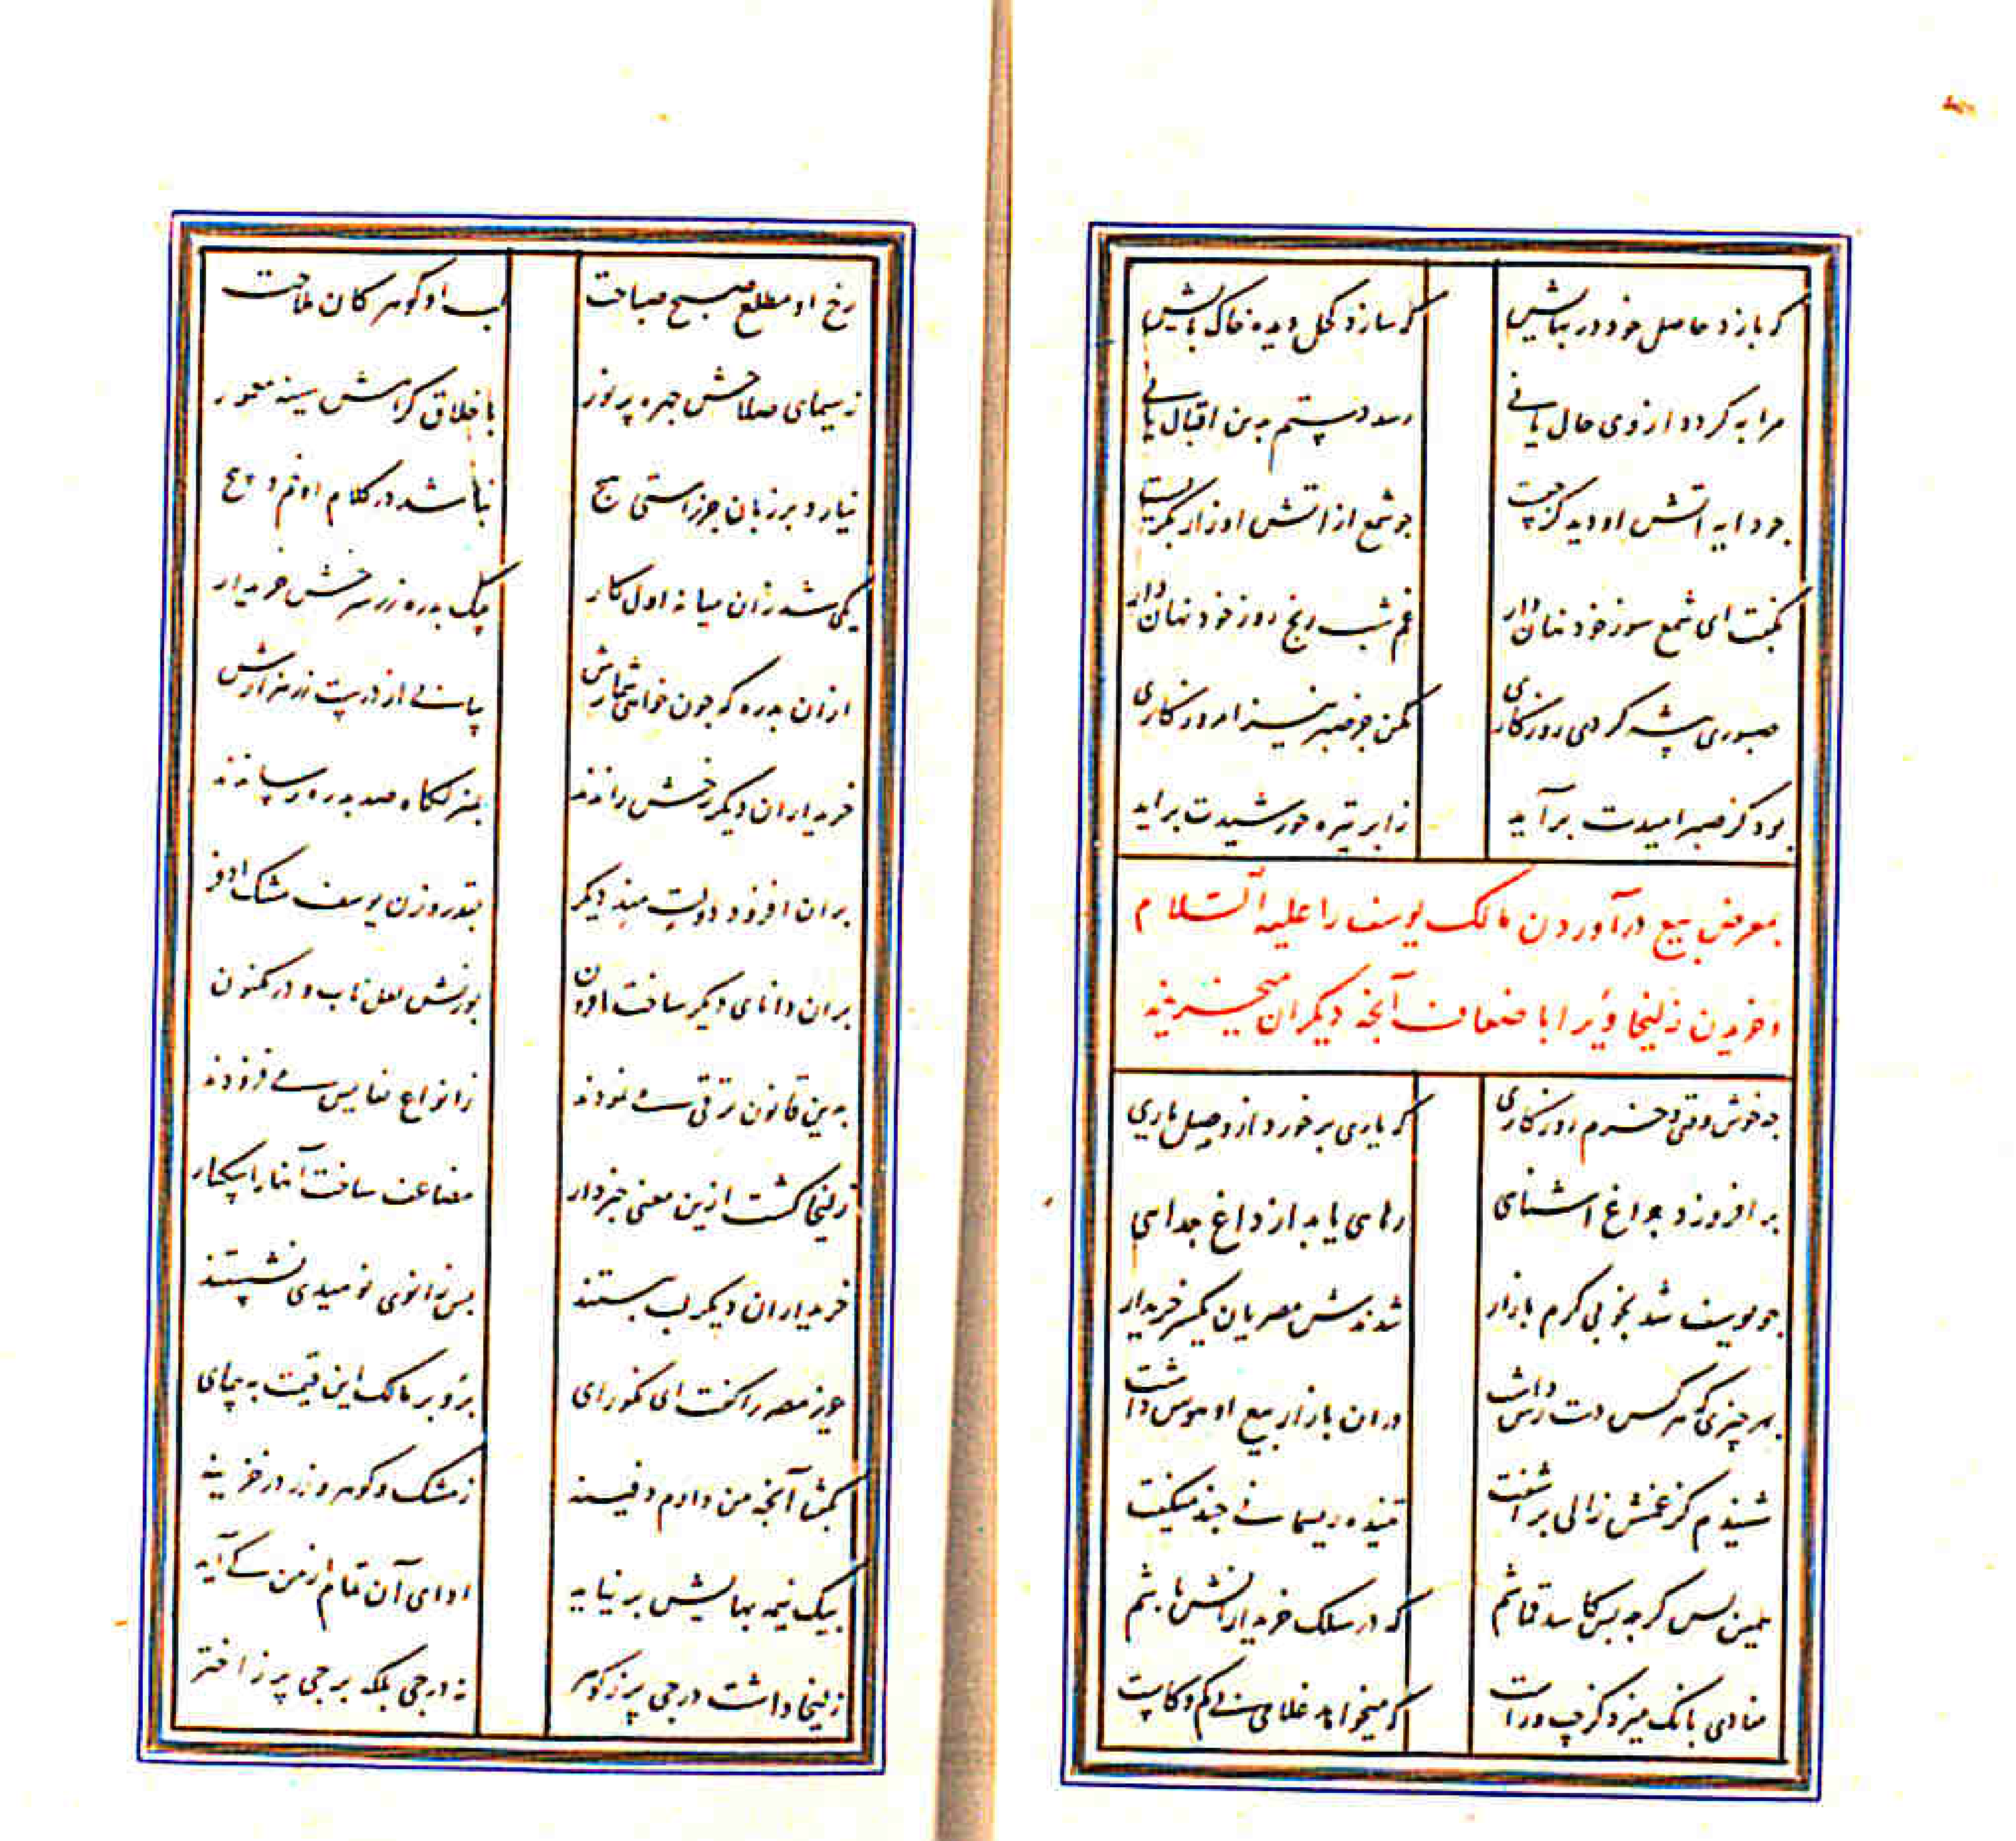 که بازد حاصل خود در بهایش که سازد کحل دیده خاک پایش
مرا به گردد از وی حال یا نی رسد دستم به من اقبال یا نی
چو دایه آتش او دید کز چیست چو شمع از آتش او زار بگریست
بگفت ای شمع سوز خود نهان دار غم شب رنج روز خود نهان دار
صبوری پیشه کردی روزگاری مکن جز صبر نیز امروز کاری
بود کز صبر امیدت بر آید ز ابر تیره خورشیدت براید
بمعرض بیع درآوردن مالک یوسف را علیه السلام
و خریدن زلیخا ویرا باضعاف آنچه دیگران میخریدند
چه خوش وقتی و خرم روزگاری که یاری برخورد از وصل یاری
بر افروزد چراغ اشنائی رهایی یابد از داغ جدایی
چو یوسف شد بخوبی گرم بازار شدندش مصریان یکسر خریدار
بهر چیزی که هر کس دست رس داشت دران بازار بیع او هوس داشت
شنیدم کز غمش زالی بر اشفت تنیده ریسمانی چند میگفت
همین بس گرچه بس کاسد قماشم که در سلک خریدارانش باشم
منادی بانک میزد کز چپ و راست که میخواهد غلامی بی کم و کاست
رخ او مطلع صبح صباحت لب او گوهر کان ملاحت
ز سیمای صلاحش چهره پر نور باخلاق کرامش سینه معمور
نیارد بر زبان جز راستی هیچ نباشد در کلام او خم و پیچ
یکی شد زان میانه اول کار بیک بدره زر سرخش خریدار
ازان بدره که چون خواهی شمارش بیابی از درست زر هزارش
خریداران دیگر رخش راندند بمنزلگاه صد بدره رساندند
بران افزود دولتمند دیگر بقدر وزن یوسف مشک اذفر
بران دانای دیگر ساخت افزون بوزنش لعل ناب و در مکنون
بدین قانون ترقی می نمودند ز انواع نفایس می فزودند
زلیخا گشت ازین معنی خبردار مضاعف ساخت آنها را بیکبار
خریداران دیگر لب ببستند پس زانوی نومیدی نشستند
عزیز مصر را گفت ای نکورای برو بر مالک این قیمت به پیمای
بگفت آنچه من دارم دفینه ز مشک و گوهر و زر در خزینه
بیک نیمه بهایش بر نیاید ادای آن تمام از من کی آید
زلیخا داشت درجی پر ز گوهر نه درجی بلکه برجی پر ز اختر